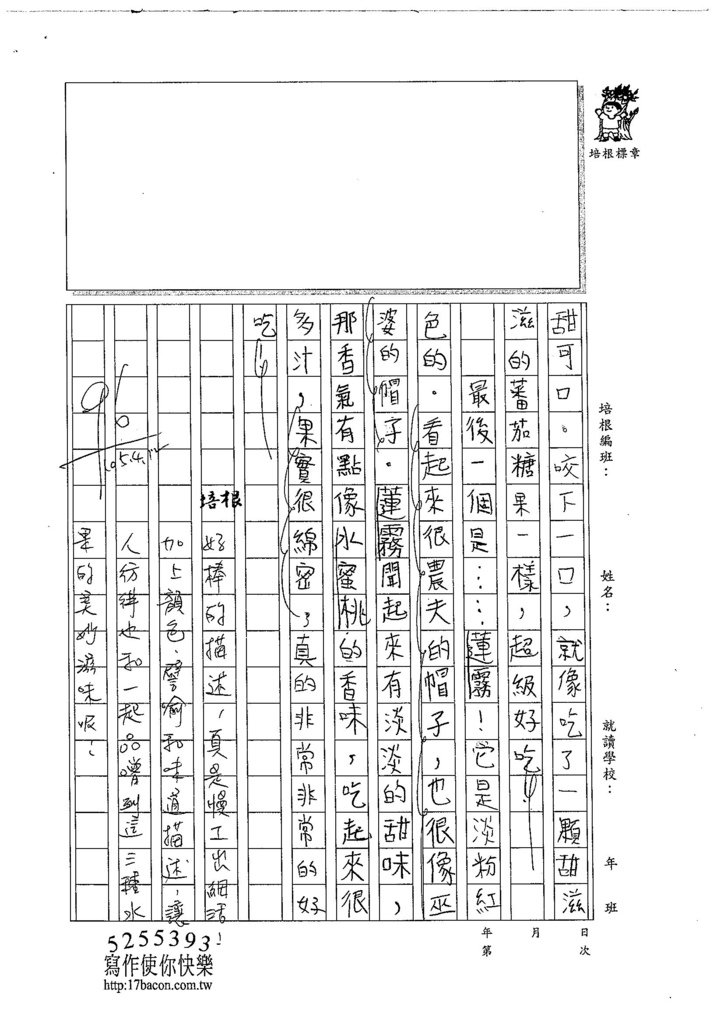 培根標章
培根編班：
姓名：
就讀學校：
年
班
甜可口。咬下一口，就像吃了一顆甜滋
滋的蕃茄糖果一樣，超級好吃！
最後一個是……蓮霧！它是淡粉紅
色的。看起來很農夫的帽子，也很像巫
婆的帽子。蓮霧聞起來有淡淡的甜味，
那香氣有點像水蜜桃的香味，吃起來很
多汁，果實很綿密，真的非常非常的好
吃。
培根
好棒的描述，真是慢工出細活！
加上顏色、譬喻和味道描述，讓
人彷彿也和一起品嚐到這三種水
果的美妙滋味呢！
96
105.4.12
年
月
日
第
次
5255393
寫作使你快樂
http:17bacon.com.tw